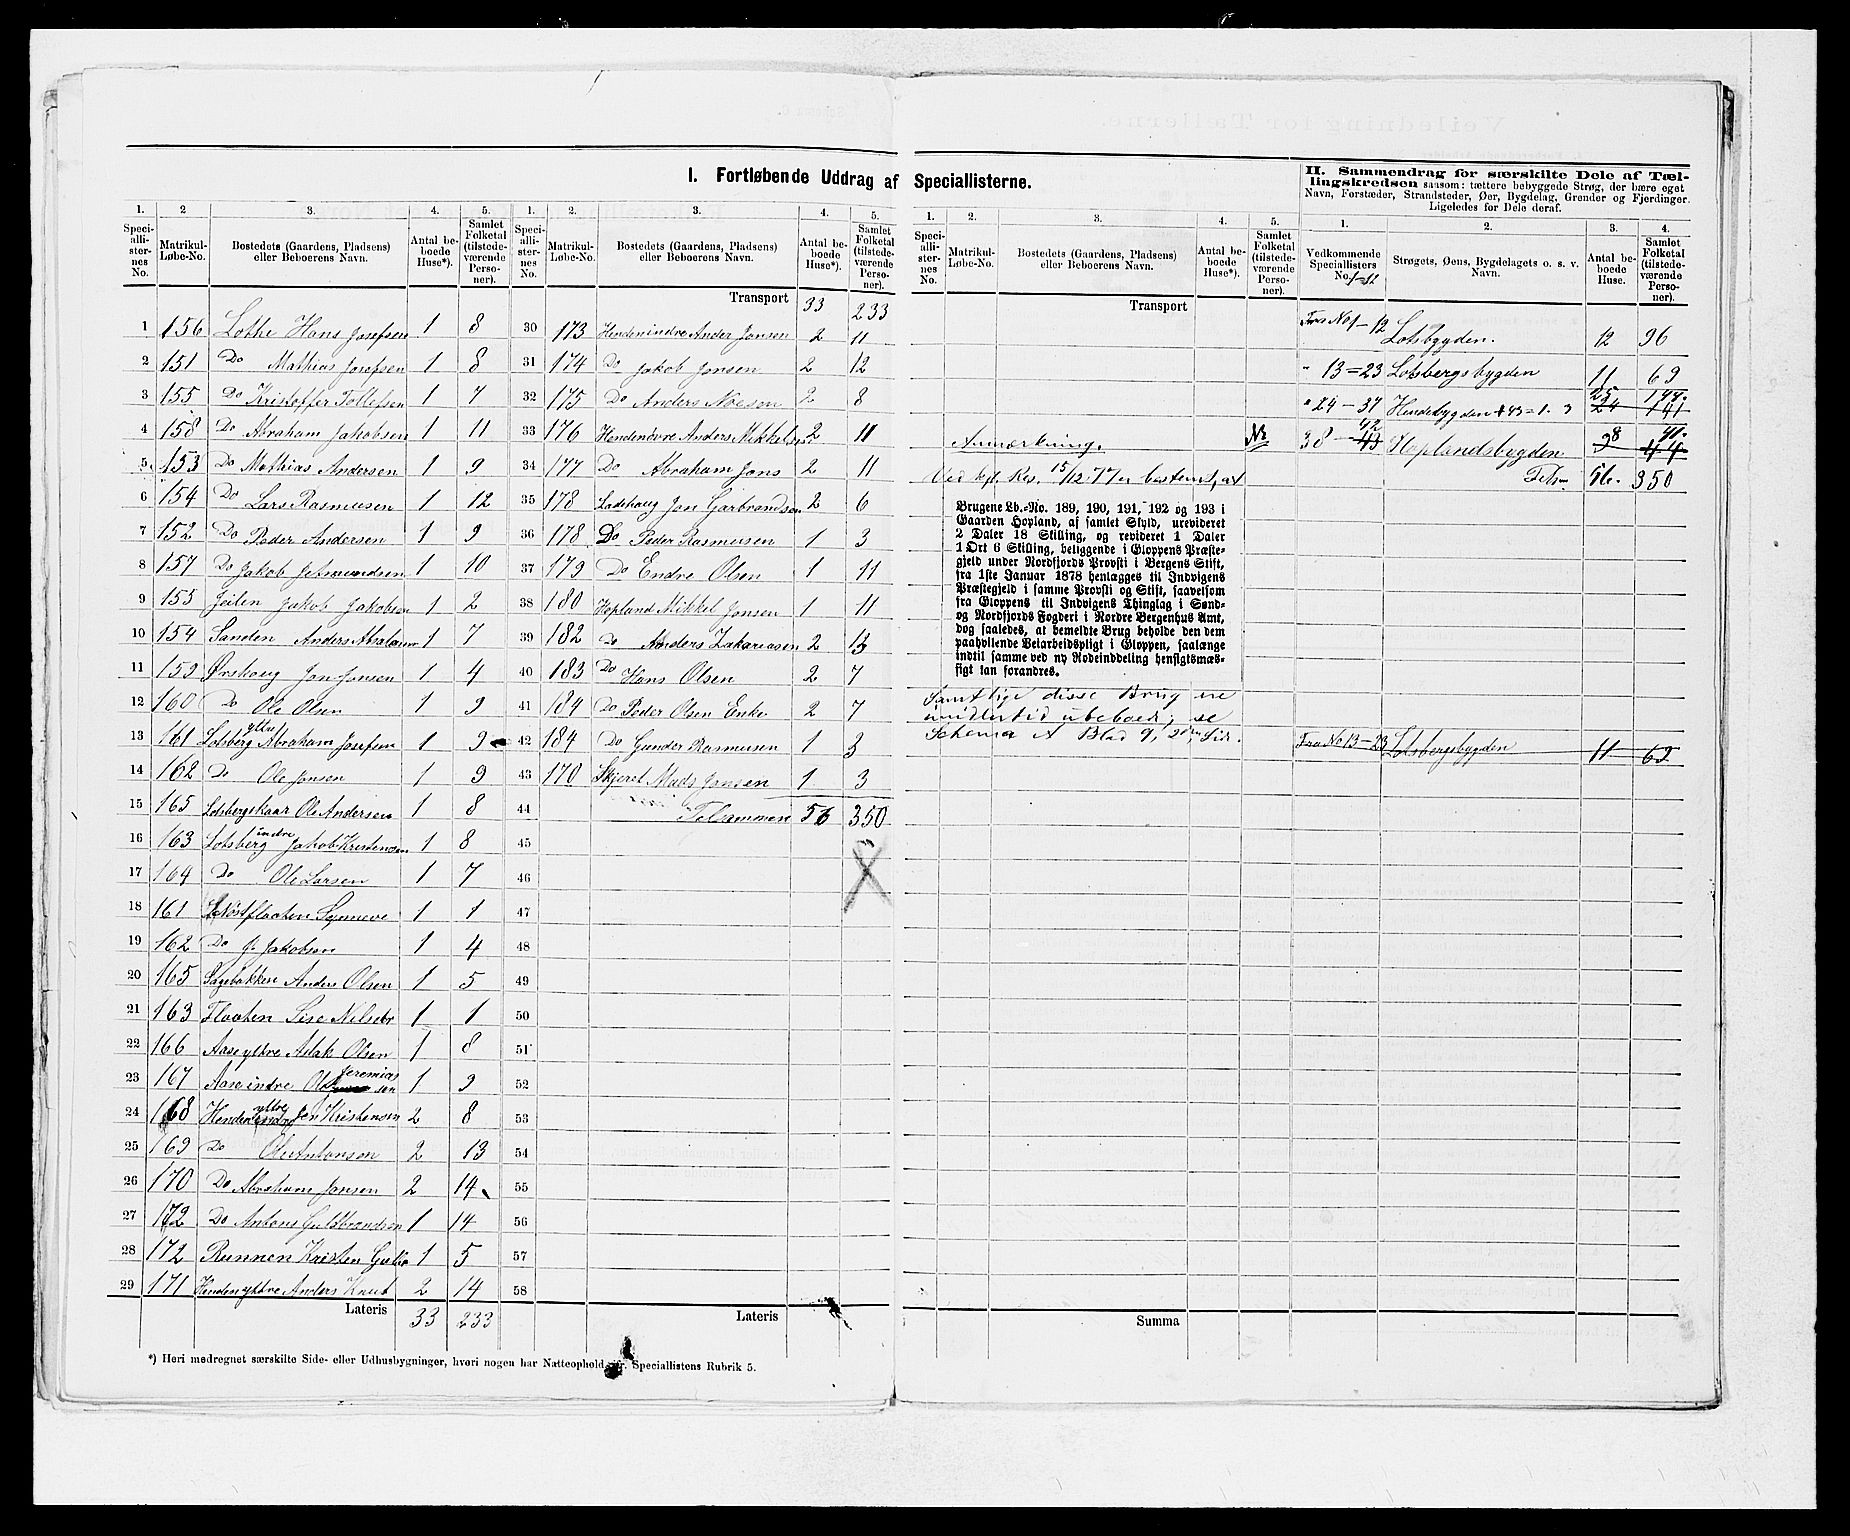 I. Fortløbende Uddrag af Speciallisterne.
II. Sammendrag for særskilte Dele af Tællingskredsen saasom: tættere bebyggede Strøg, der bære eget
Navn, Forstæder, Strandsteder, Øer, Bygdelag, Grender og Fjerdinger.
Ligeledes for Dele deraf.
1. Speciallisternes No. 2 Matrikul-Løbe-No. 3. Bostedets (Gaardens, Pladsens) eller Beboerens Navn. 4. Antal beboede Huse*). 5. Samlet Folketal (tilstedeværende Personer).
1 156 Lothe Hans Josefsen 1 8
2 151 Do Mathias Josefsen 1 8
3 155 Do Kristoffer Tollefsen 1 7
4 158 Do Abraham Jakobsen 1 11
5 153 Do Mathias Andersen 1 9
6 154 Do Lars Rasmusen 1 12
7 152 Do Peder Andersen 1 9
8 157 Do Jakob 1 10
9 155 Jeilen Jakob Jakobsen 1 2
10 154 Sanden Anders 1 7
11 159 Ørskoug Jon Jonsen 1 4
12 160 Do Ole Olsen 1 9
13 161 Lotsberg ytre Abraham Josefsen 1 9
14 162 Do Ole Jonsen 1 9
15 165 Lotsbergskaar Ole Andersen 1 8
16 163 Lotsberg indre Jakob Kristensen 1 8
17 164 Do Ole Larsen 1 7
18 161 Synneve 1 1
19 162 Do J. Jakobsen 1 4
20 165 Sagebakken Anders Olsen 1 5
21 163 Flaaten Lise Nilsdr 1 1
22 166 Aase yttre Aslak Olsen 1 8
23 167 Aase indre Ole Jeremiassen 1 9
24 168 Henden yttre Jon Kristensen 2 8
25 169 Do Ole Antonson 2 13
26 170 Do Abraham Jonsen 2 14
27 172 Do Antons Guldbrandsen 1 14
28 172 Runnen Kristen 1 5
29 171 Henden yttre Anders Knut 2 14
Lateris 33 233
1. Speciallisternes No. 2. Matrikul-Løbe-No. 3. Bostedets (Gaardens, Pladsens) eller Beboerens Navn. 4. Antal beboede Huse*). 5. Samlet Folketal (tilstedeværende Personer).
Transport 33 233
30 173 Henden indre Ander Jonsen 2 11
31 174 Do Jakob Jonsen 2 12
32 175 Do Anders Noeson 2 8
33 176 Henden Anders Mikkelsen 2 11
34 177 Do Abraham Jons 2 11
35 178 Ladehoug Jon Garbrandsen 2 6
36 178 Do Peder Rasmusen 1 3
37 179 Do Endre Olsen 1 11
38 180 Hopland Mikkel Jonsen 1 11
39 182 Do Anders Zakariasen 2 13
40 183 Do Hans Olsen 2 7
41 184 Do Peder Olsen Enke 2 7
42 184 Do Gunder Rasmusen 1 3
43 170 Skjeret Mads Jonsen 1 3
44 Tilsammen 56 350
45
46
47
48
49
50
51
52
53
54
55
56
57
58
Lateris
1. Speciallisternes No. 2. Matrikul-Løbe-No. 3. Bostedets (Gaardens, Pladsens) eller Beboerens Navn. 4. Antal beboede Huse*). 5. Samlet Folketal (tilstedeværende Personer).
Transport
Anmærkning.
Ved kgl. Res. 15/12 77 er bestemt, at
Brugene Lb.-No. 189, 190, 191, 192 og 193 i
Gaarden Hopland, af samlet Skyld, urevideret
2 Daler 18 Skilling, og revideret 1 Daler
1 Ort 6 Skilling, beliggende i Gloppens Præste-
gjeld under Nordfjords Provsti i Bergens Stift,
fra 1ste Januar 1878 henlægges til Indvigens
Præstegjeld i samme Provsti og Stift, saavelsom
fra Gloppens til Indvigens Thinglag i Sønd-
og Nordfjords Fogderi i Nordre Bergenhus Amt,
dog saaledes, at bemeldte Brug beholde den dem
paahvilende Veiarbeidspligt i Gloppen, saalænge
indtil samme ved ny Rodeinddeling hensigtsmæs-
sigt kan forandres.
Samtlige disse Brug ere
imidlertid ubeboede, se
Schema A Blad 9, 2den Side.
Summa
1. Vedkommende Speciallisters No. 1=12 2. Strøgets, Øens, Bygdelagets o. s. v. Navn. 3. Antal beboede Huse. 4. Samlet Folketal (tilstedeværende Personer).
Fra No 1-12 Lotsbygden. 12 96
" 13=23 Lotsbergsbygden 11 69
" 24-37 Hendebygden + 43 = 1. 3 24 25 141 144.
No 38-43 42 Hoplandsbygden 9 8 44 41.
Tils. 56. 350
Fra No 13-23 Lotsbergsbygden 11 69
*) Heri medregnet særskilte Side- eller Udhusbygninger, hvori nogen har Natteophold, cfr. Speciallistens Rubrik 5.